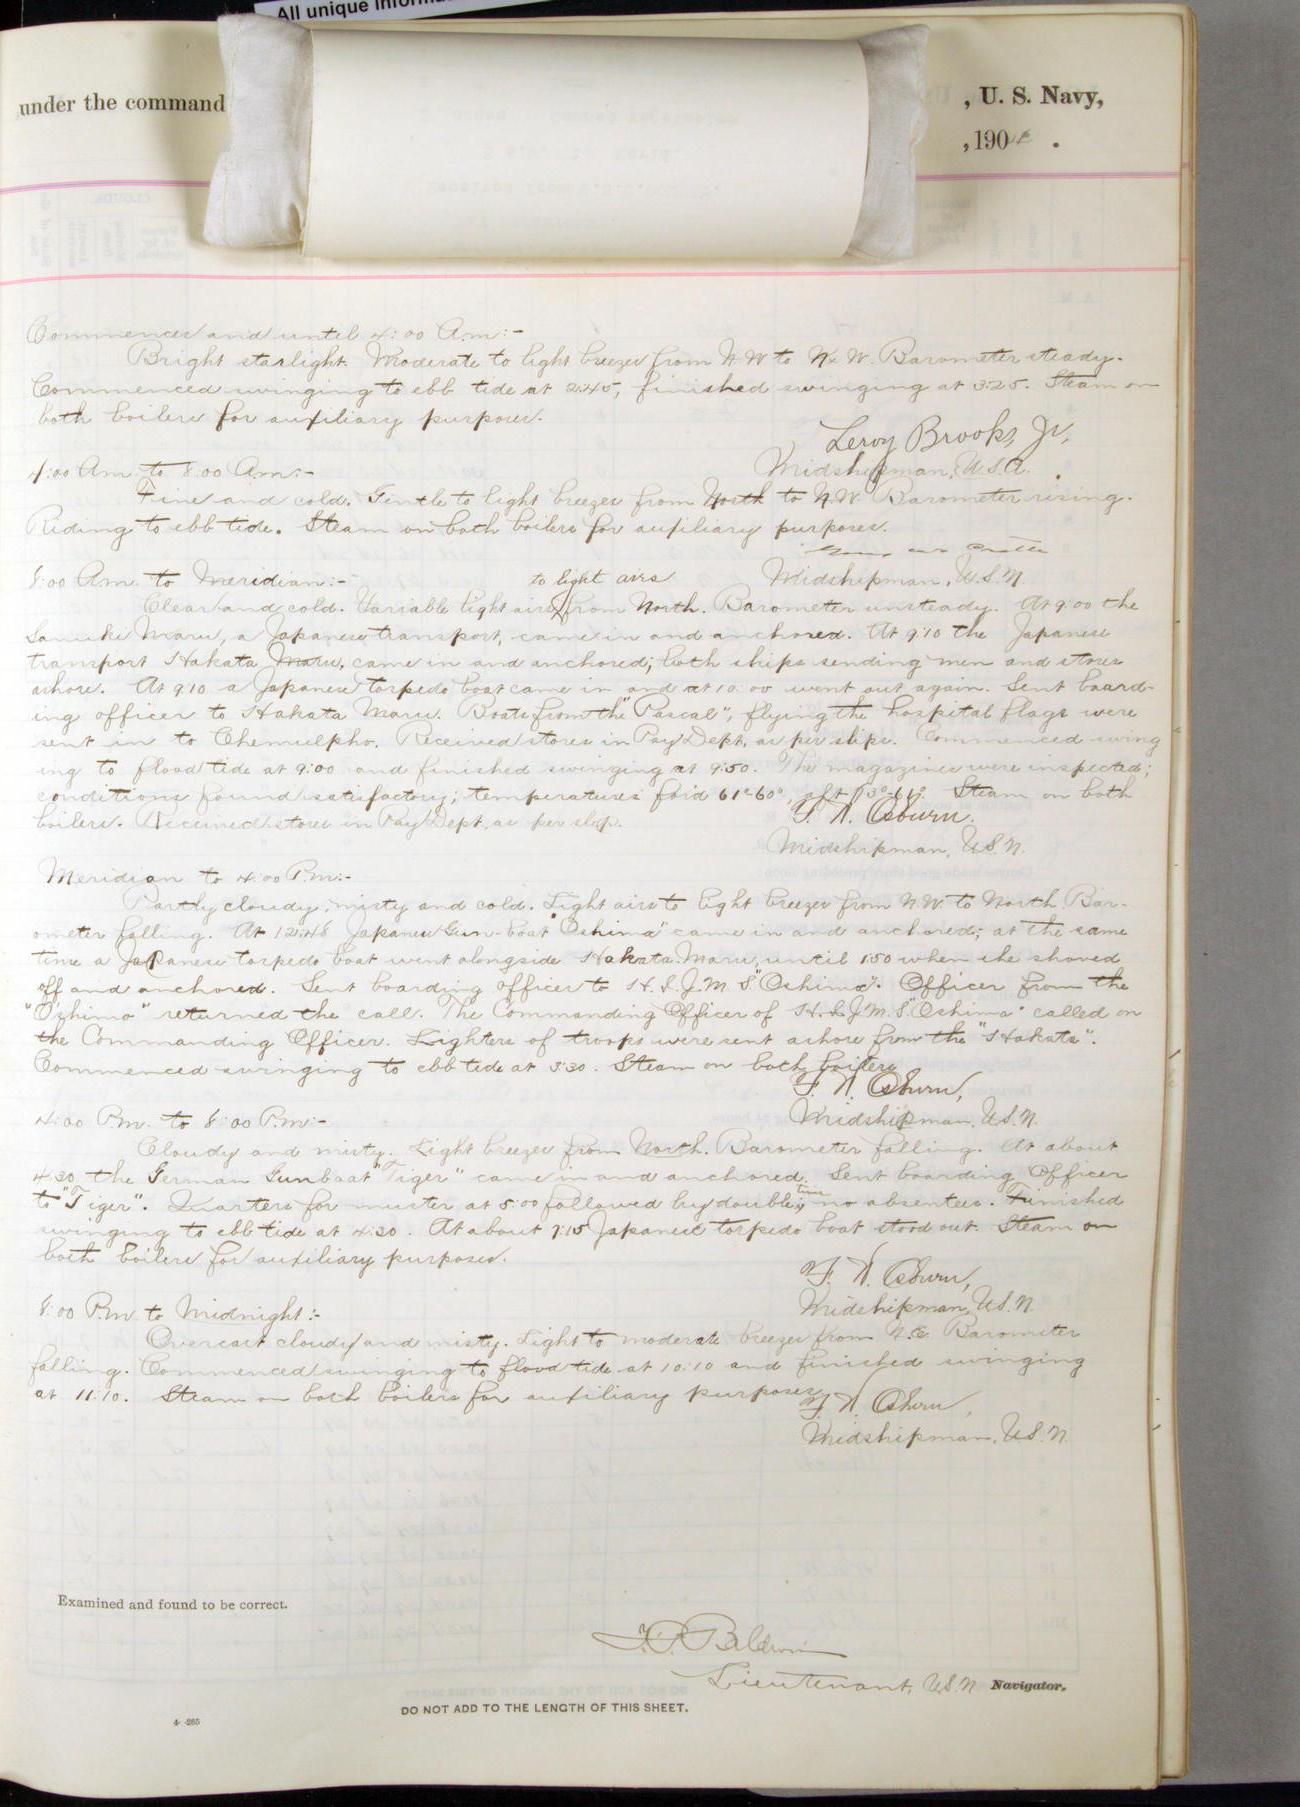 All unique inform
under the command
, U. S. Navy,
, 190 .
Commences and until 4:00 A.m:-
Bright starlight. Moderate to light breezes from N.W. to N. x W. Barometer steady.
Commenced swinging to ebb tide at 2:45, finished swinging at 3:25. Steam on
both boilers for auxiliary purposes.
Leroy Brooks, Jr,
Midshipman, U.S.N.
4:00 Am. to 8:00 A.m:-
Fine and cold. Gentle to light breezes from North to N.W. Barometer rising.
Riding to ebb tide. Steam on both boilers for auxiliary purposes.
Midshipman, U.S.N.
8:00 A.m. to Meridian:-
to light airs
Clear and cold. Variable light airs from North. Barometer unsteady. At 9:00 the
Sanuki Maru, a Japanese transport, came in and anchored. At 9:10 the Japanese
transport Hakata Maru, came in and anchored; both ships sending men and stores
ashore. At 9:10 a Japanese torpedo boat came in and at 10:00 went out again. Sent board-
ing officer to Hakata Maru. Boats from the "Pascal", flying the hospital flags were
sent in to Chemulpho. Received stores in Pay Dept. as per slips. Commenced swing
ing to flood tide at 9:00 and finished swinging at 9:50. The magazines were inspected;
conditions found satisfactory; temperatures for'd 61°-60°, aft Steam on both
boilers. Received stores in Pay Dept. as per slip.
F. N. Osburn.
Midshipman, U.S.N.
Meridian to 4:00 P.m:-
Partly cloudy, misty and cold. Light airs to light breezes from N.W. to North. Bar-
ometer falling. At 12:48 Japanese Gun-boat "Oshima" came in and anchored; at the same
time a Japanese torpedo boat went alongside Hakata Maru, until 1:50 when she shoved
off and anchored. Sent boarding officer to H.I.J.M.S "Oshima". Officer from the
"Oshima" returned the call. The Commanding Officer of H.I.J.M.S. "Oshima" called on
the Commanding Officer. Lighters of troops were sent ashore from the "Hakata".
Commenced swinging to ebb tide at 3:30. Steam on both boilers.
F. N. Osburn,
Midshipman, U.S.N.
4:00 P.m. to 8:00 P.m:-
Cloudy and misty. Light breezes from North. Barometer falling. At about
4:30 the German Gunboat "Tiger" came in and anchored. Sent boarding Officer
to "Tiger". Quarters for muster at 5:00 followed by double time; no absentees. Finished
swinging to ebb tide at 4:30. At about 7:15 Japanese torpedo boat stood out. Steam on
both boilers for auxiliary purposes.
F. N. Osburn,
Midshipman, U.S.N.
8:00 P.m. to Midnight:-
Overcast cloudy and misty. Light to moderate breezes from N.E. Barometer
falling. Commenced swinging to flood tide at 10:10 and finished swinging
at 11:10. Steam on both boilers for auxiliary purposes.
F. N. Osburn,
Midshipman, U.S.N.
Examined and found to be correct.
Baldwin
Lieutenant, U.S.N Navigator.
DO NOT ADD TO THE LENGTH OF THIS SHEET.